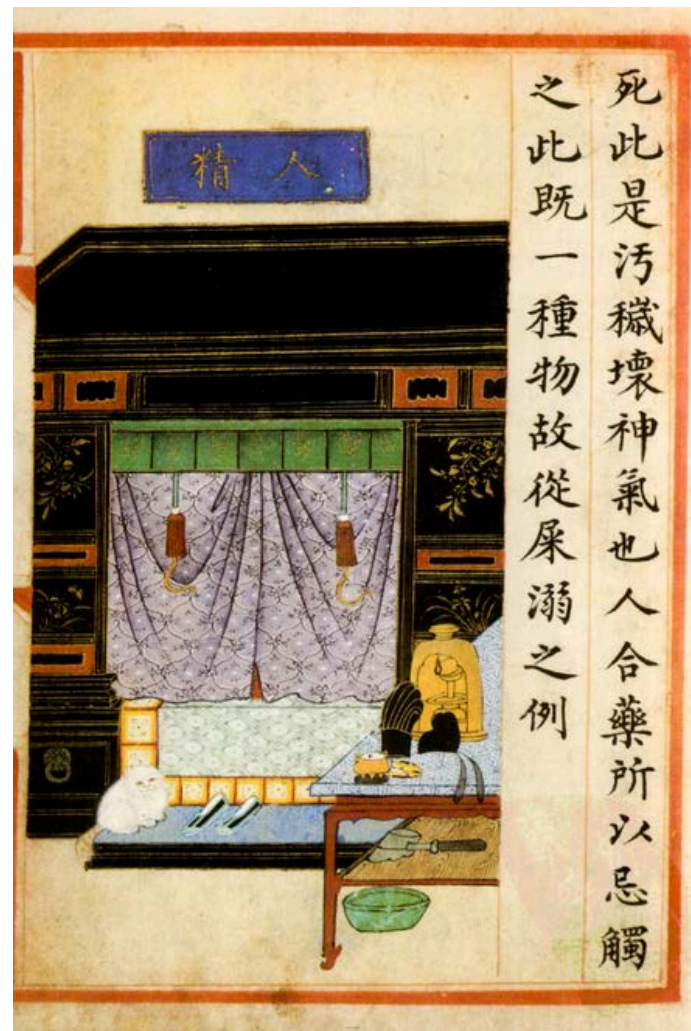 死此是污穢壞神氣也人合藥所以忌觸
之此既一種物故從屎溺之例
人精